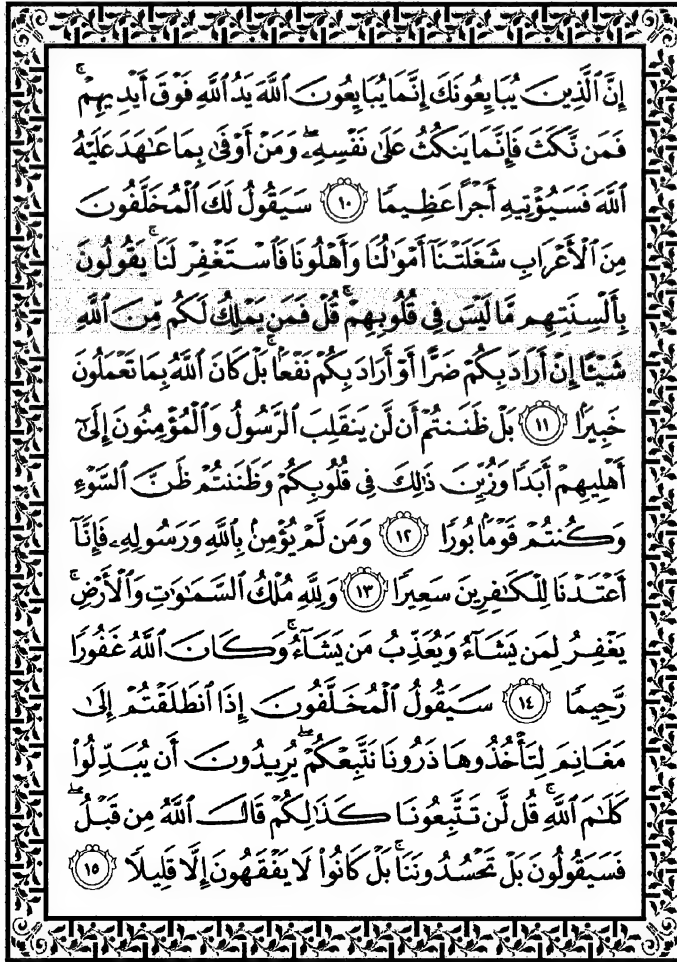 إِنَّ ٱلَّذِينَ يُبَايِعُونَكَ إِنَّمَا يُبَايِعُونَ ٱللَّهَ يَدُ ٱللَّهِ فَوْقَ أَيْدِيهِمْ ۚ
فَمَن نَّكَثَ فَإِنَّمَا يَنكُثُ عَلَىٰ نَفْسِهِۦ ۖ وَمَنْ أَوْفَىٰ بِمَا عَـٰهَدَ عَلَيْهُ
ٱللَّهَ فَسَيُؤْتِيهِ أَجْرًا عَظِيمًا ١٠ سَيَقُولُ لَكَ ٱلْمُخَلَّفُونَ
مِنَ ٱلْأَعْرَابِ شَغَلَتْنَآ أَمْوَٰلُنَا وَأَهْلُونَا فَٱسْتَغْفِرْ لَنَا ۚ يَقُولُونَ
بِأَلْسِنَتِهِم مَّا لَيْسَ فِى قُلُوبِهِمْ ۚ قُلْ فَمَن يَمْلِكُ لَكُم مِّنَ ٱللَّهِ
شَيْـًٔا إِنْ أَرَادَ بِكُمْ ضَرًّا أَوْ أَرَادَ بِكُمْ نَفْعًۢا ۚ بَلْ كَانَ ٱللَّهُ بِمَا تَعْمَلُونَ
خَبِيرًۢا ١١ بَلْ ظَنَنتُمْ أَن لَّن يَنقَلِبَ ٱلرَّسُولُ وَٱلْمُؤْمِنُونَ إِلَىٰٓ
أَهْلِيهِمْ أَبَدًا وَزُيِّنَ ذَٰلِكَ فِى قُلُوبِكُمْ وَظَنَنتُمْ ظَنَّ ٱلسَّوْءِ
وَكُنتُمْ قَوْمًۢا بُورًا ١٢ وَمَن لَّمْ يُؤْمِنۢ بِٱللَّهِ وَرَسُولِهِۦ فَإِنَّآ
أَعْتَدْنَا لِلْكَـٰفِرِينَ سَعِيرًا ١٣ وَلِلَّهِ مُلْكُ ٱلسَّمَـٰوَٰتِ وَٱلْأَرْضِ ۚ
يَغْفِرُ لِمَن يَشَآءُ وَيُعَذِّبُ مَن يَشَآءُ ۚ وَكَانَ ٱللَّهُ غَفُورًا
رَّحِيمًا ١٤ سَيَقُولُ ٱلْمُخَلَّفُونَ إِذَا ٱنطَلَقْتُمْ إِلَىٰ
مَغَانِمَ لِتَأْخُذُوهَا ذَرُونَا نَتَّبِعْكُمْ ۖ يُرِيدُونَ أَن يُبَدِّلُوا۟
كَلَـٰمَ ٱللَّهِ ۚ قُل لَّن تَتَّبِعُونَا كَذَٰلِكُمْ قَالَ ٱللَّهُ مِن قَبْلُ ۖ
فَسَيَقُولُونَ بَلْ تَحْسُدُونَنَا ۚ بَلْ كَانُوا۟ لَا يَفْقَهُونَ إِلَّا قَلِيلًا ١٥